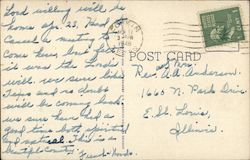 Lord willing will be
home Apr 23. Had
Caused a meeting to
Come here but felt
it was the Lord's
will. we sure like
Texas and no doubt
will be coming back.
we sure have had a
good time both spiritual
and natural. This is a
beautiful country.
POST CARD
Rev. A. A. Anderson.
1663 N. Park Driv
E. St. Louis,
Illinois.